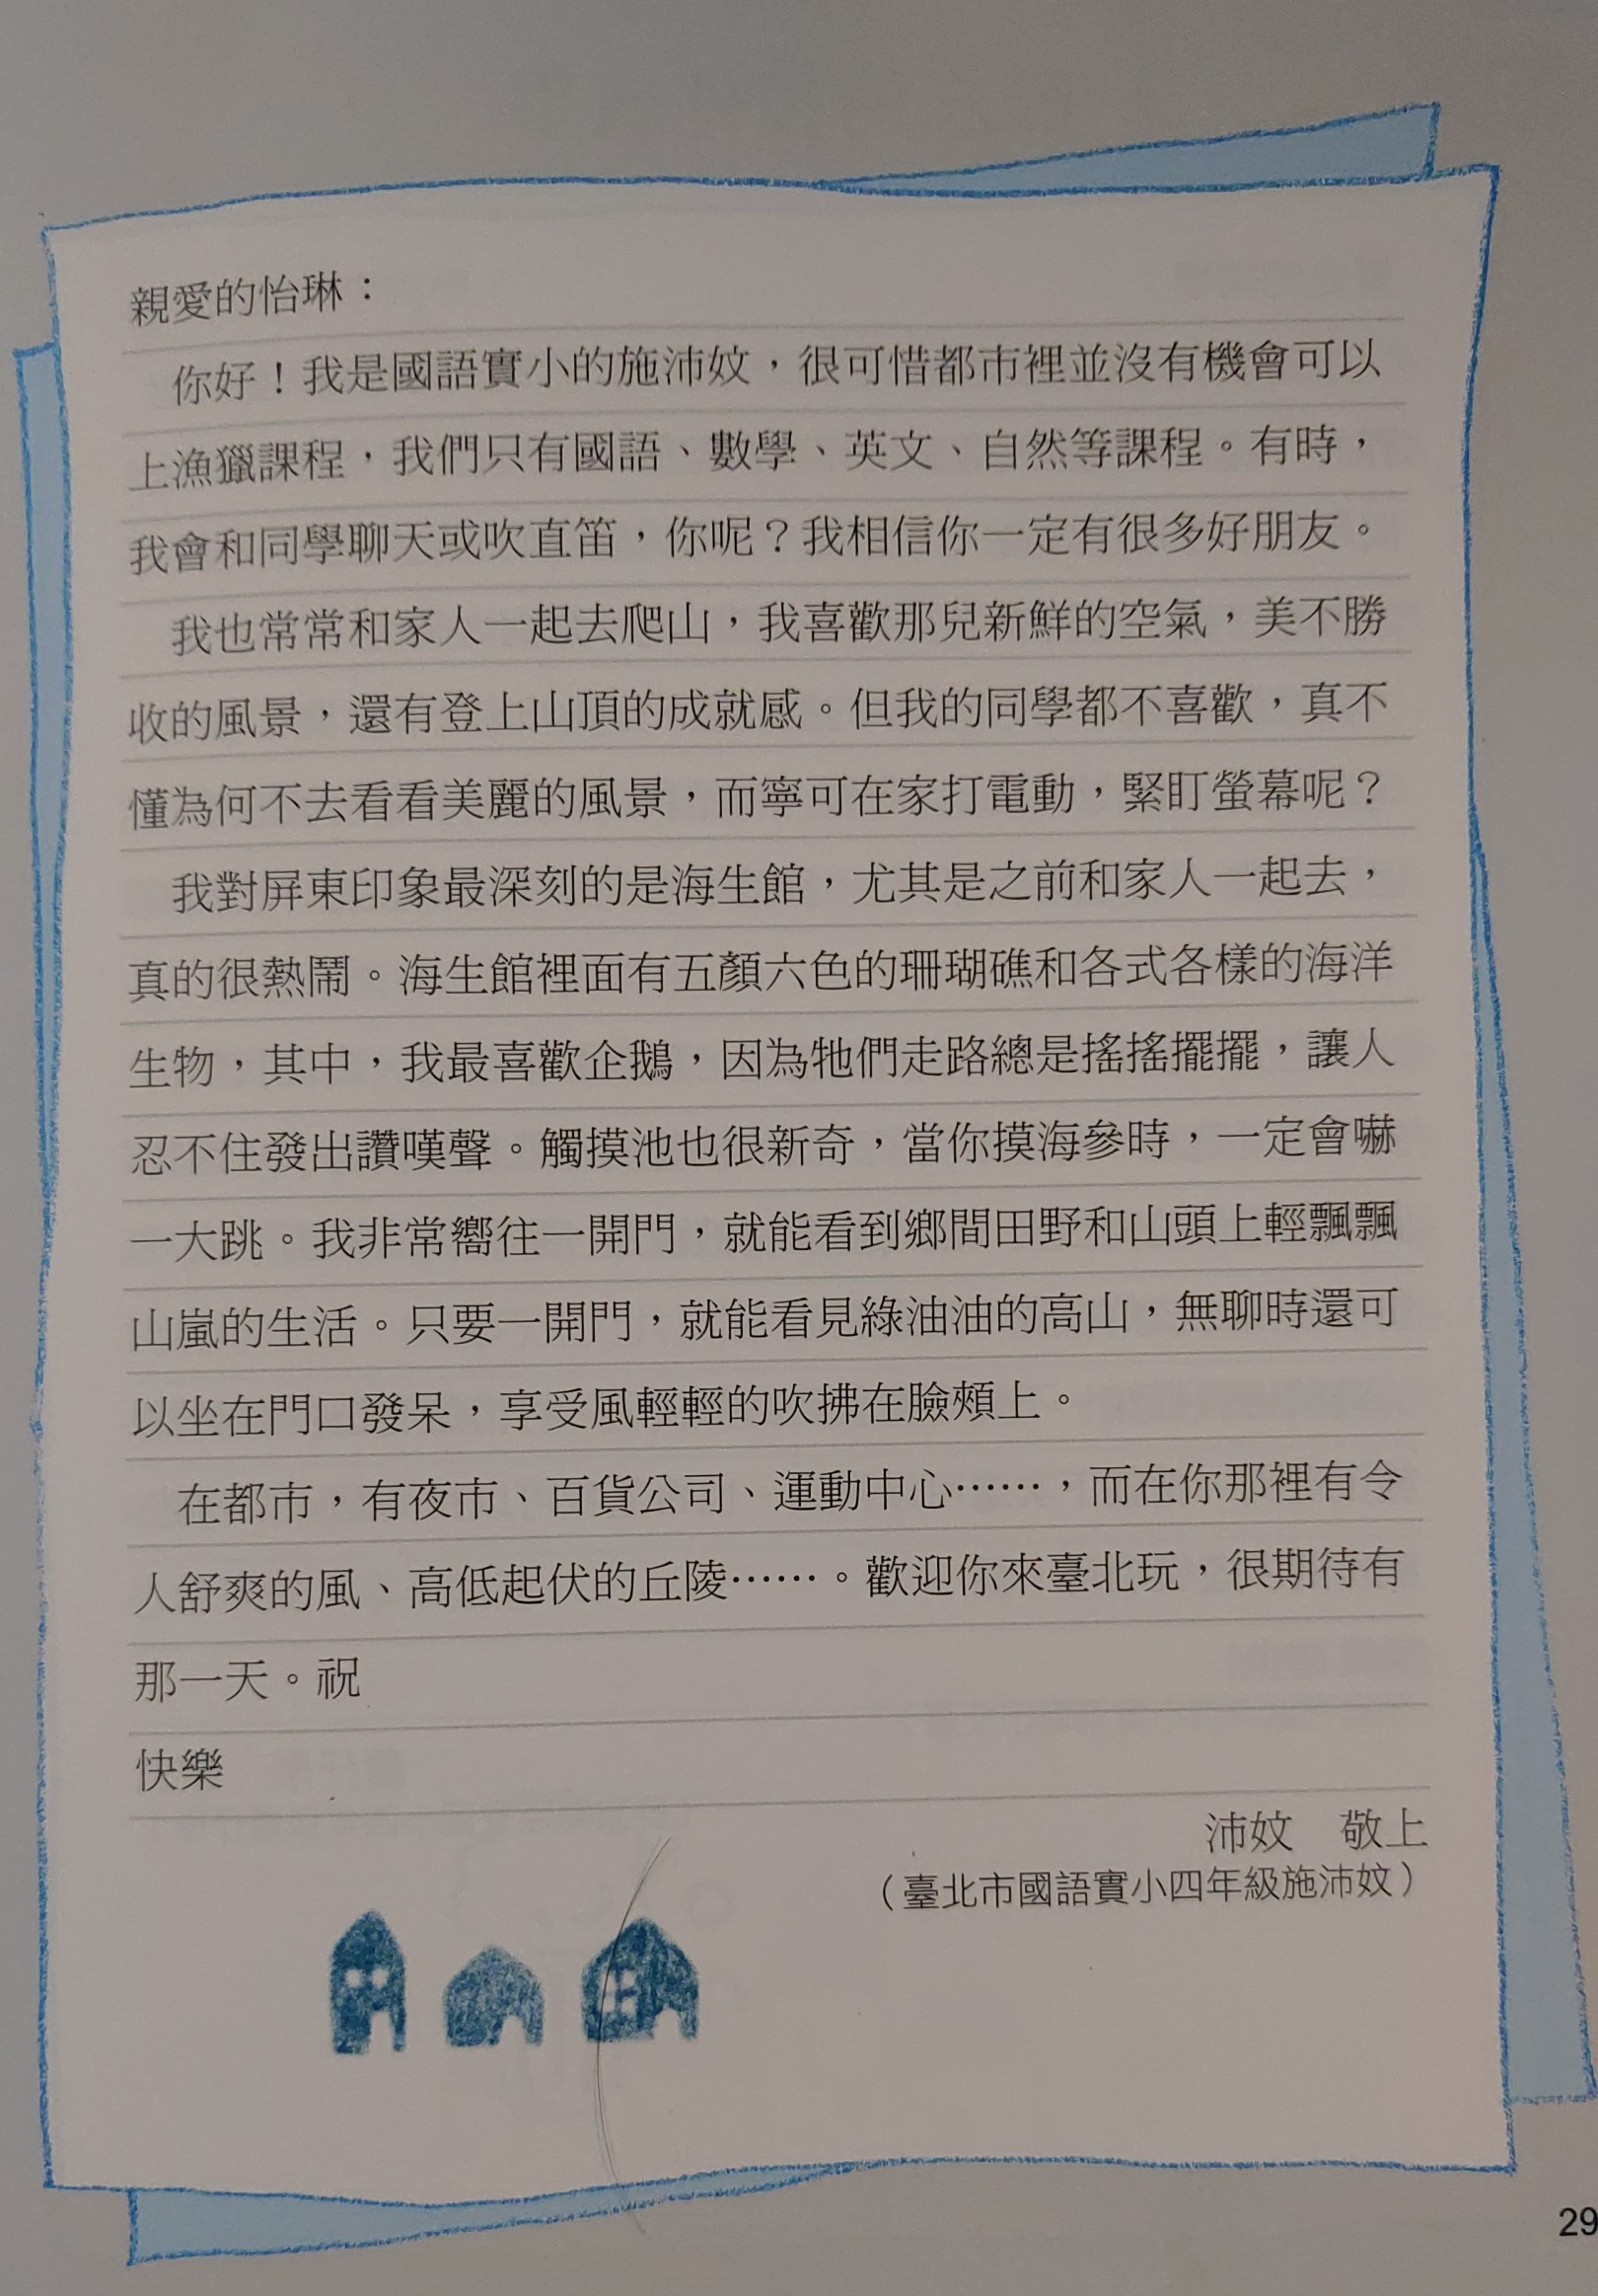 親愛的怡琳：
你好！我是國語實小的施沛妏，很可惜都市裡並沒有機會可以
上漁獵課程，我們只有國語、數學、英文、自然等課程。有時，
我會和同學聊天或吹直笛，你呢？我相信你一定有很多好朋友。
我也常常和家人一起去爬山，我喜歡那兒新鮮的空氣，美不勝
收的風景，還有登上山頂的成就感。但我的同學都不喜歡，真不
懂為何不去看看美麗的風景，而寧可在家打電動，緊盯螢幕呢？
我對屏東印象最深刻的是海生館，尤其是之前和家人一起去，
真的很熱鬧。海生館裡面有五顏六色的珊瑚礁和各式各樣的海洋
生物，其中，我最喜歡企鵝，因為牠們走路總是搖搖擺擺，讓人
忍不住發出讚嘆聲。觸摸池也很新奇，當你摸海參時，一定會嚇
一大跳。我非常嚮往一開門，就能看到鄉間田野和山頭上輕飄飄
山嵐的生活。只要一開門，就能看見綠油油的高山，無聊時還可
以坐在門口發呆，享受風輕輕的吹拂在臉頰上。
在都市，有夜市、百貨公司、運動中心……，而在你那裡有令
人舒爽的風、高低起伏的丘陵……。歡迎你來臺北玩，很期待有
那一天。祝
快樂
沛妏　敬上
（臺北市國語實小四年級施沛妏）
29